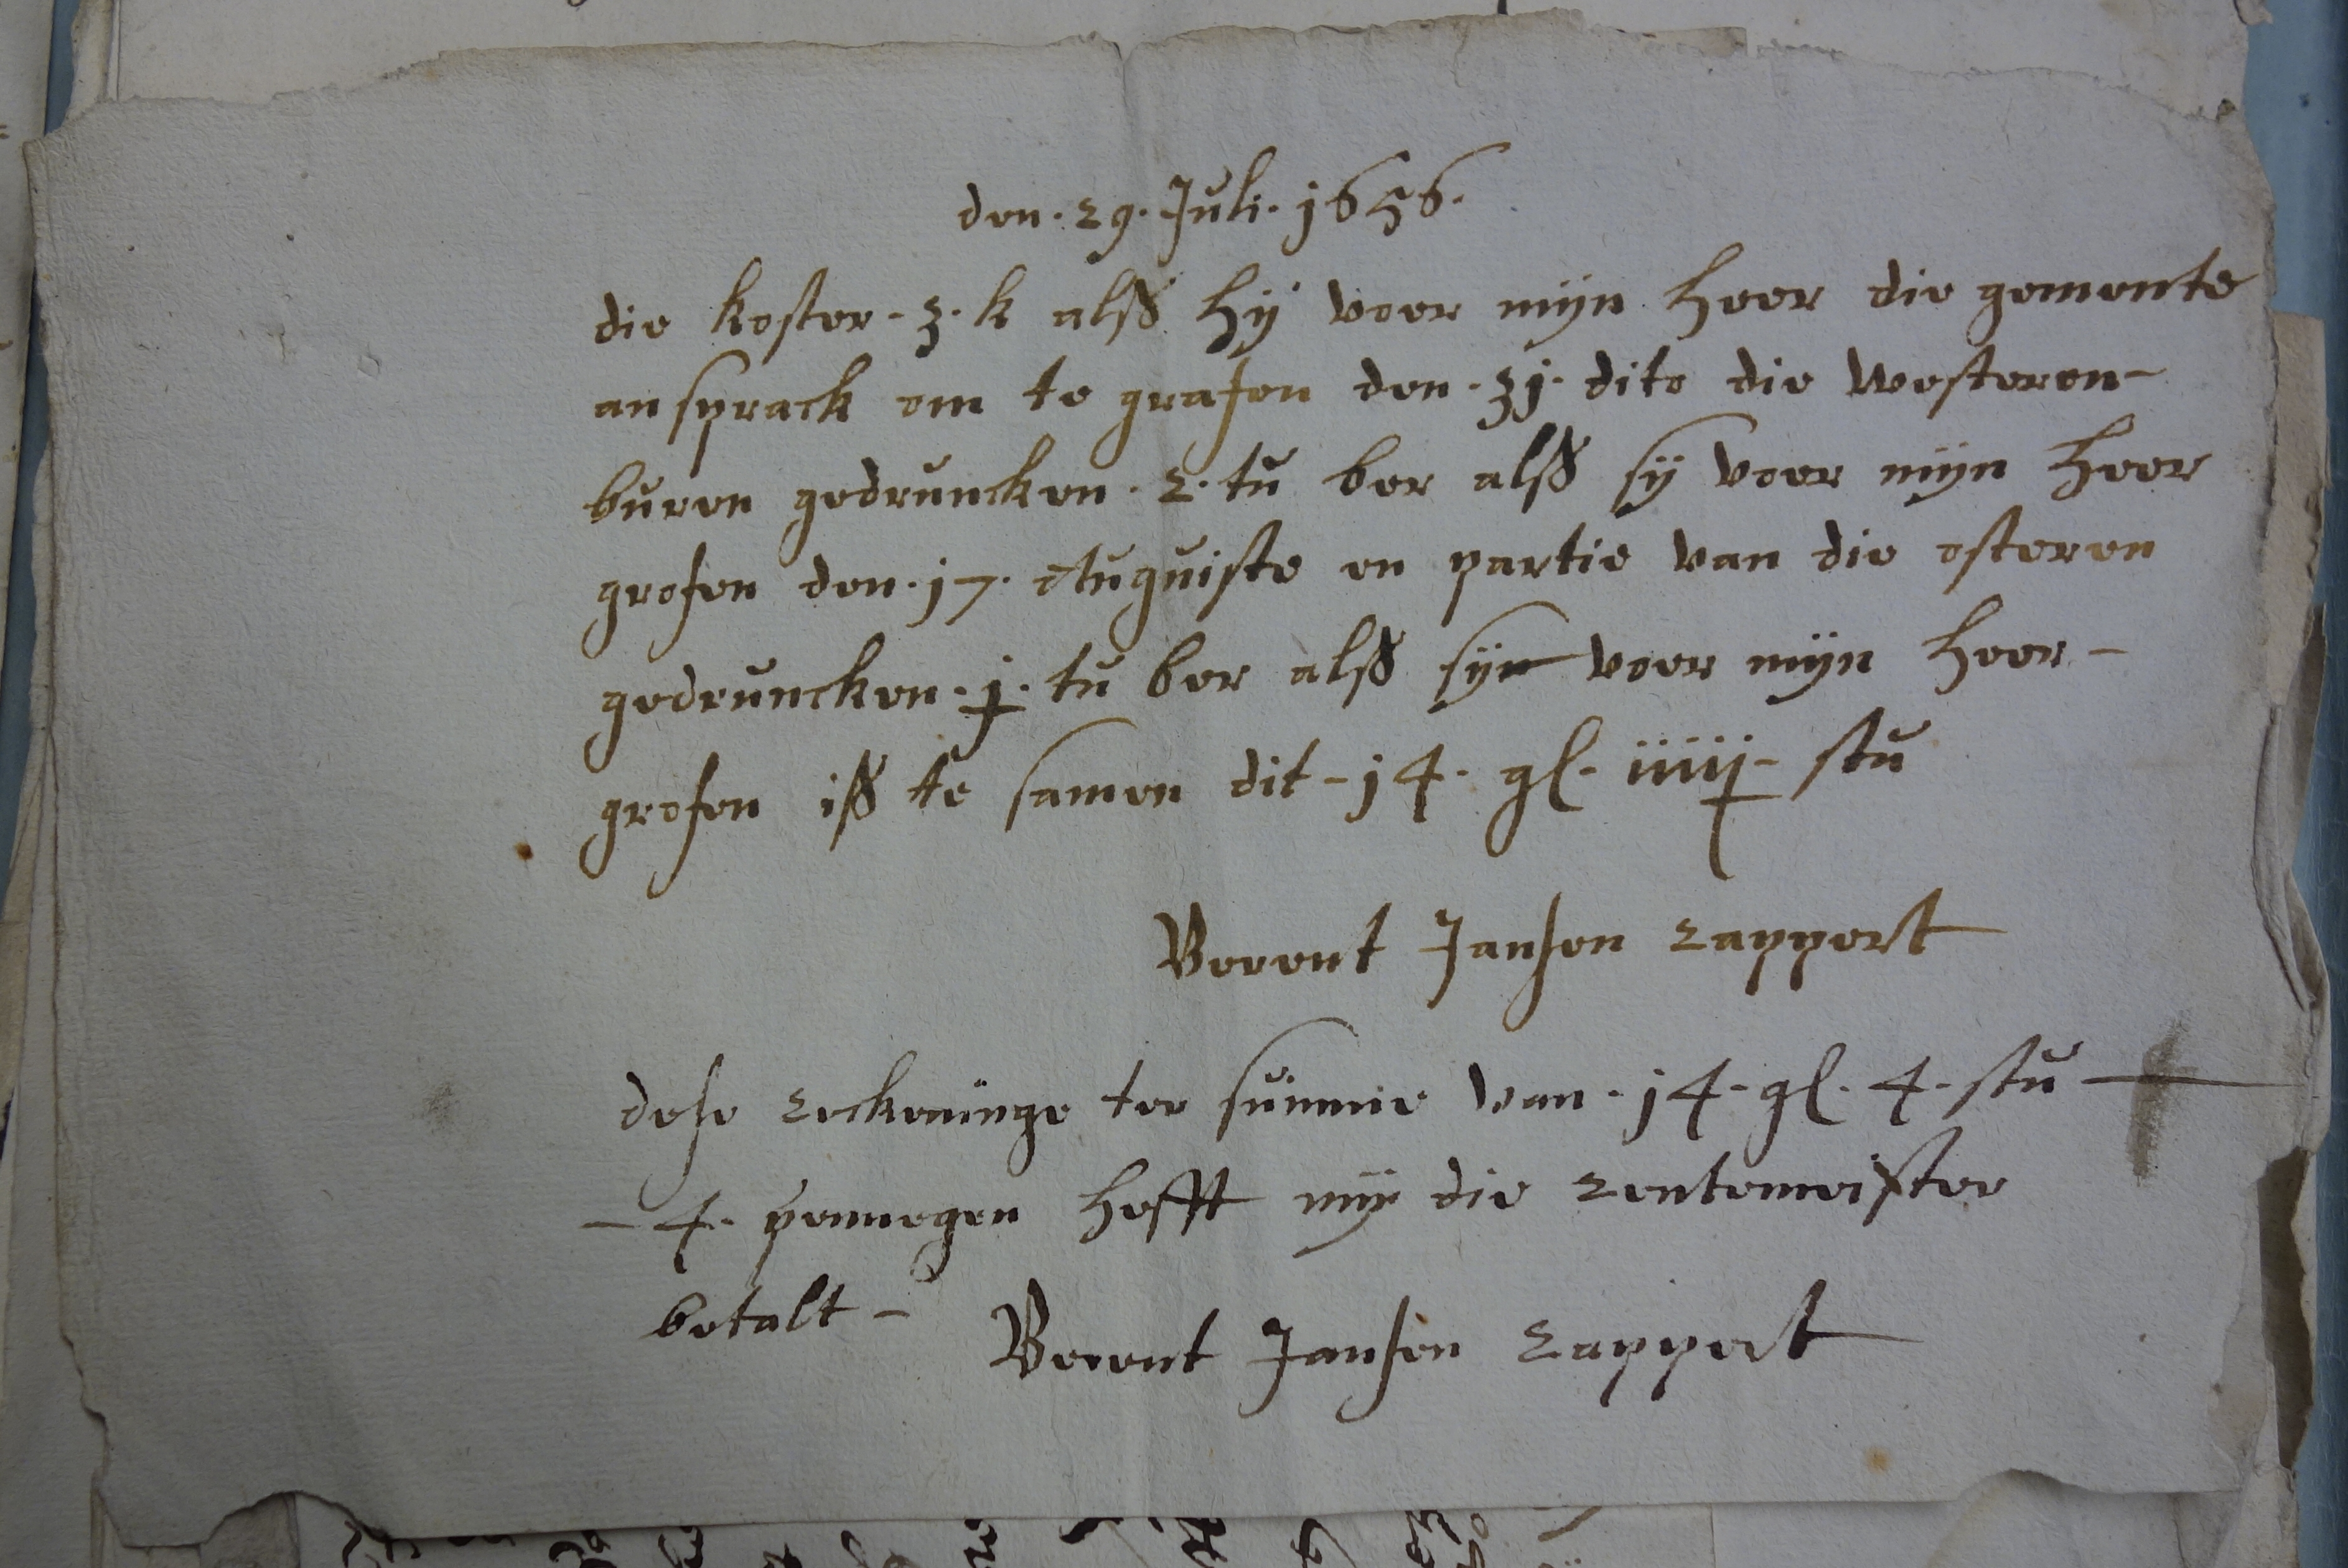 den. 29. Juli. 1656.
die koster. 3. k alsß hÿ voer mÿn heer die gemente
an sprack om te grafen den. 31. dito die westeren-
buren gedruncken. 2. tu ber alsß sÿ voer mÿn heer
grofen den. 17. Auguiste en partie van die osteren
gedruncken. j. tu ber alsß sÿn voer mÿn heer-
grofen isß te samen dit - 14. gl. iiiij - stu
Berent Jansen Rappert
dese Reckeninge ter summe van. 14. gl. 4. stu
- 4. pennegen hefft mÿ die Rentemeister
betalt - Berent Jansen Rappert